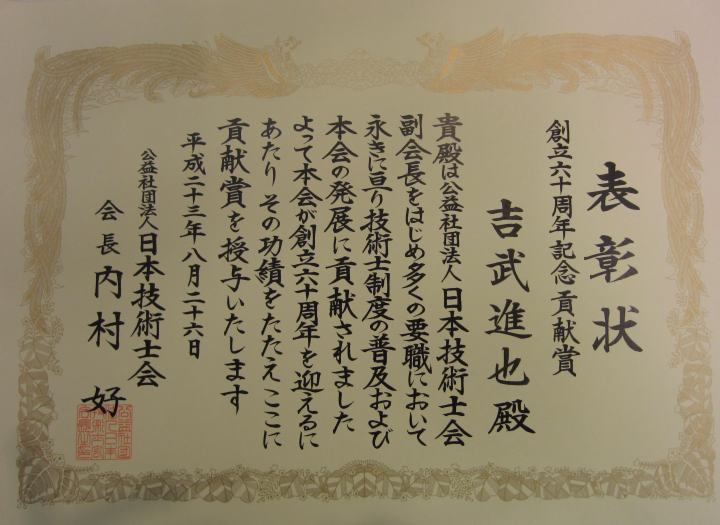 表彰状
創立六十周年記念貢献賞
吉武進也殿
貴殿は公益社団法人日本技術士会
副会長をはじめ多くの要職において
永きに亘り技術士制度の普及および
本会の発展に貢献されました
よって本会が創立六十周年を迎えるに
あたり その功績をたたえ ここに
貢献賞を授与いたします
平成二十三年八月二十六日
公益社団法人日本技術士会
会長 内村 好